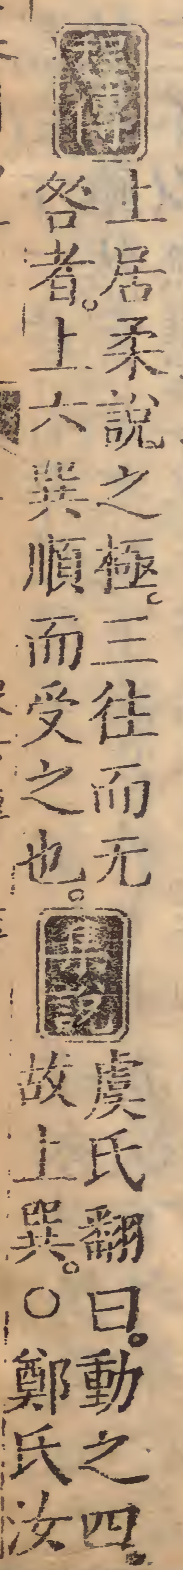 程傳
上居柔說之極。三往而无
咎者。上六巽順而受之也。
集說
虞氏翻曰。動之四。
故上巽。○鄭氏汝